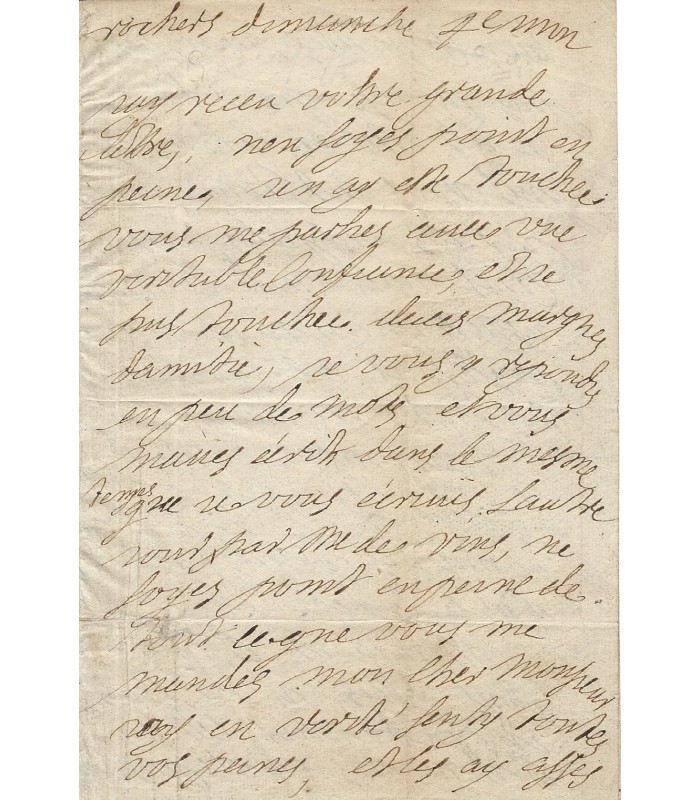 rochers dimanche 4e mon
iay receu vostre grande
lettre, nen soyes point en
peine, ien ay este touchee
vous me parles auec vne
veritable Confiance, et ie
suis touchee de ces marques
damitie, ie vous y repondis
en peu de mots et vous
maues écrit dans le mesme
temps que ie vous écriuis lautre
iour par Me de vins, ne
soyes point en peine de
tout ce que vous me
mandes mon cher Monsieur
iay en verité senty toutes
vos peines, et les ay asses